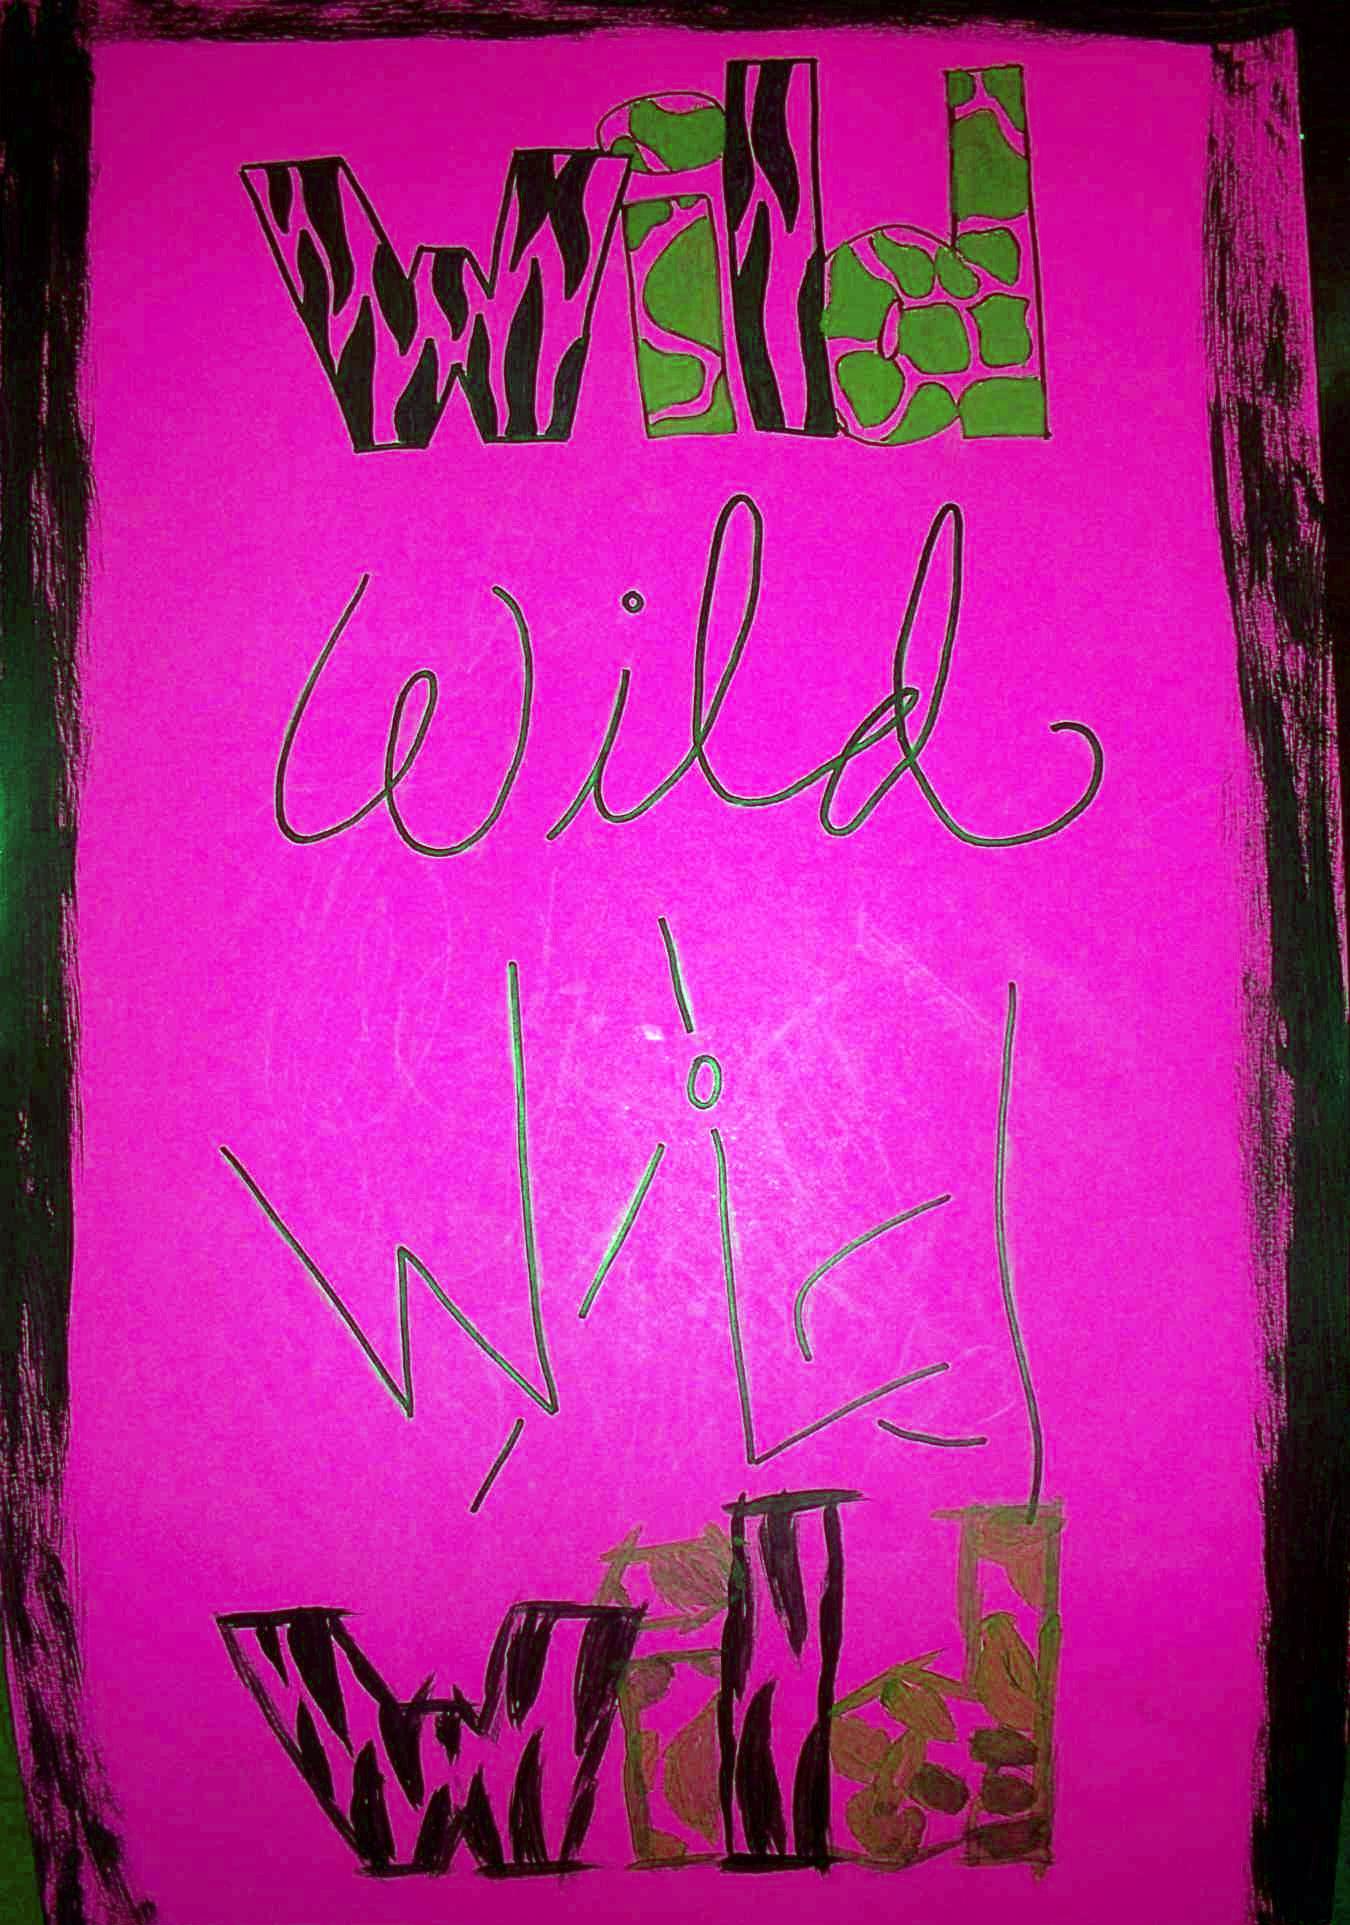 wild
Wild
Wild
wild